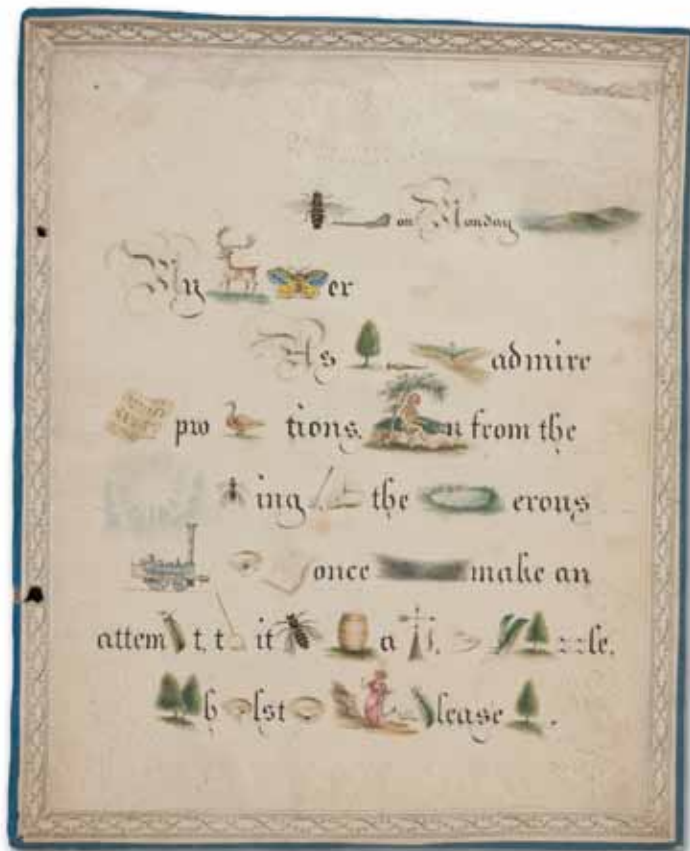 on Monday
My er
As admire
pro tions, n from the
ing the erous
once make an
attem t, t it a
zzle.
b lst lease .